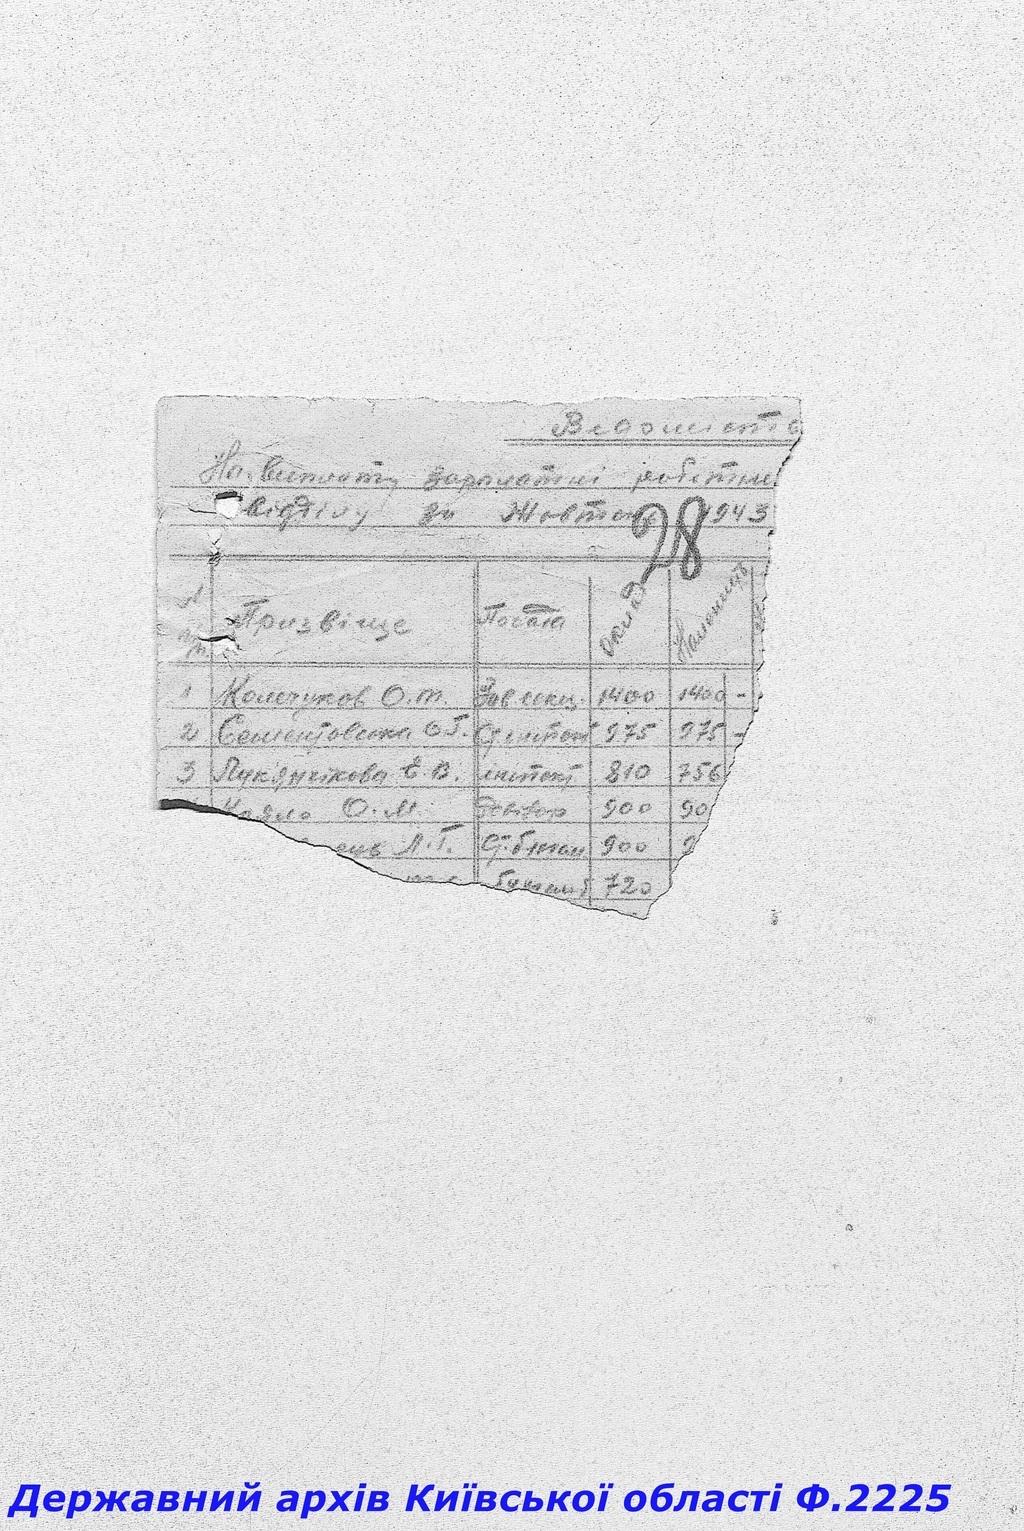 Відомість
На виплату зарплатні робітни
відділу за Жовтень 1943
28
№ п/п. Прізвище Посада Оклад
1 О.Т. Зав секц. 1400 1400 -
2 Сементовська О.Г. Ст інспект 975 975 -
3 Лук'янихова Є.В. інспект 810 756
О.М. Ревізор 900 90
Л.Г. Ст. бухгал 900 9
бухгалт 720
Державний архів Київської області Ф.2225